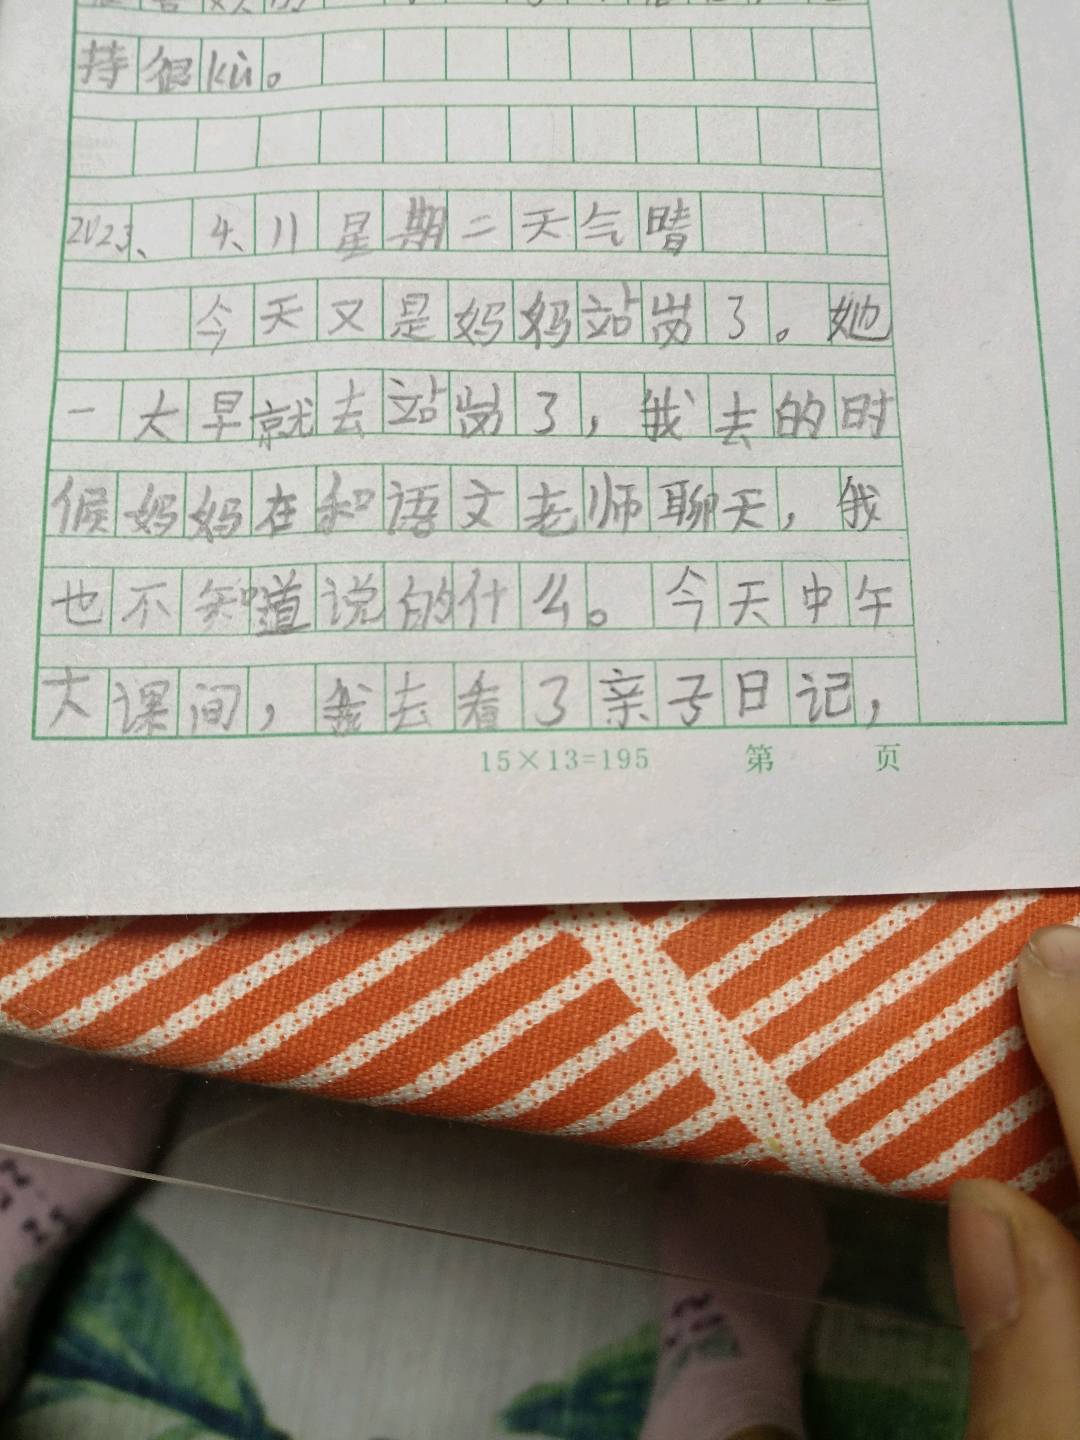 持很kù。
2023、4、11星期二天气晴
今天又是妈妈站岗了。她
一大早就去站岗了，我去的时
候妈妈在和语文老师聊天，我
也不知道说的什么。今天中午
大课间，我去看了亲子日记，
15×13=195 第 页